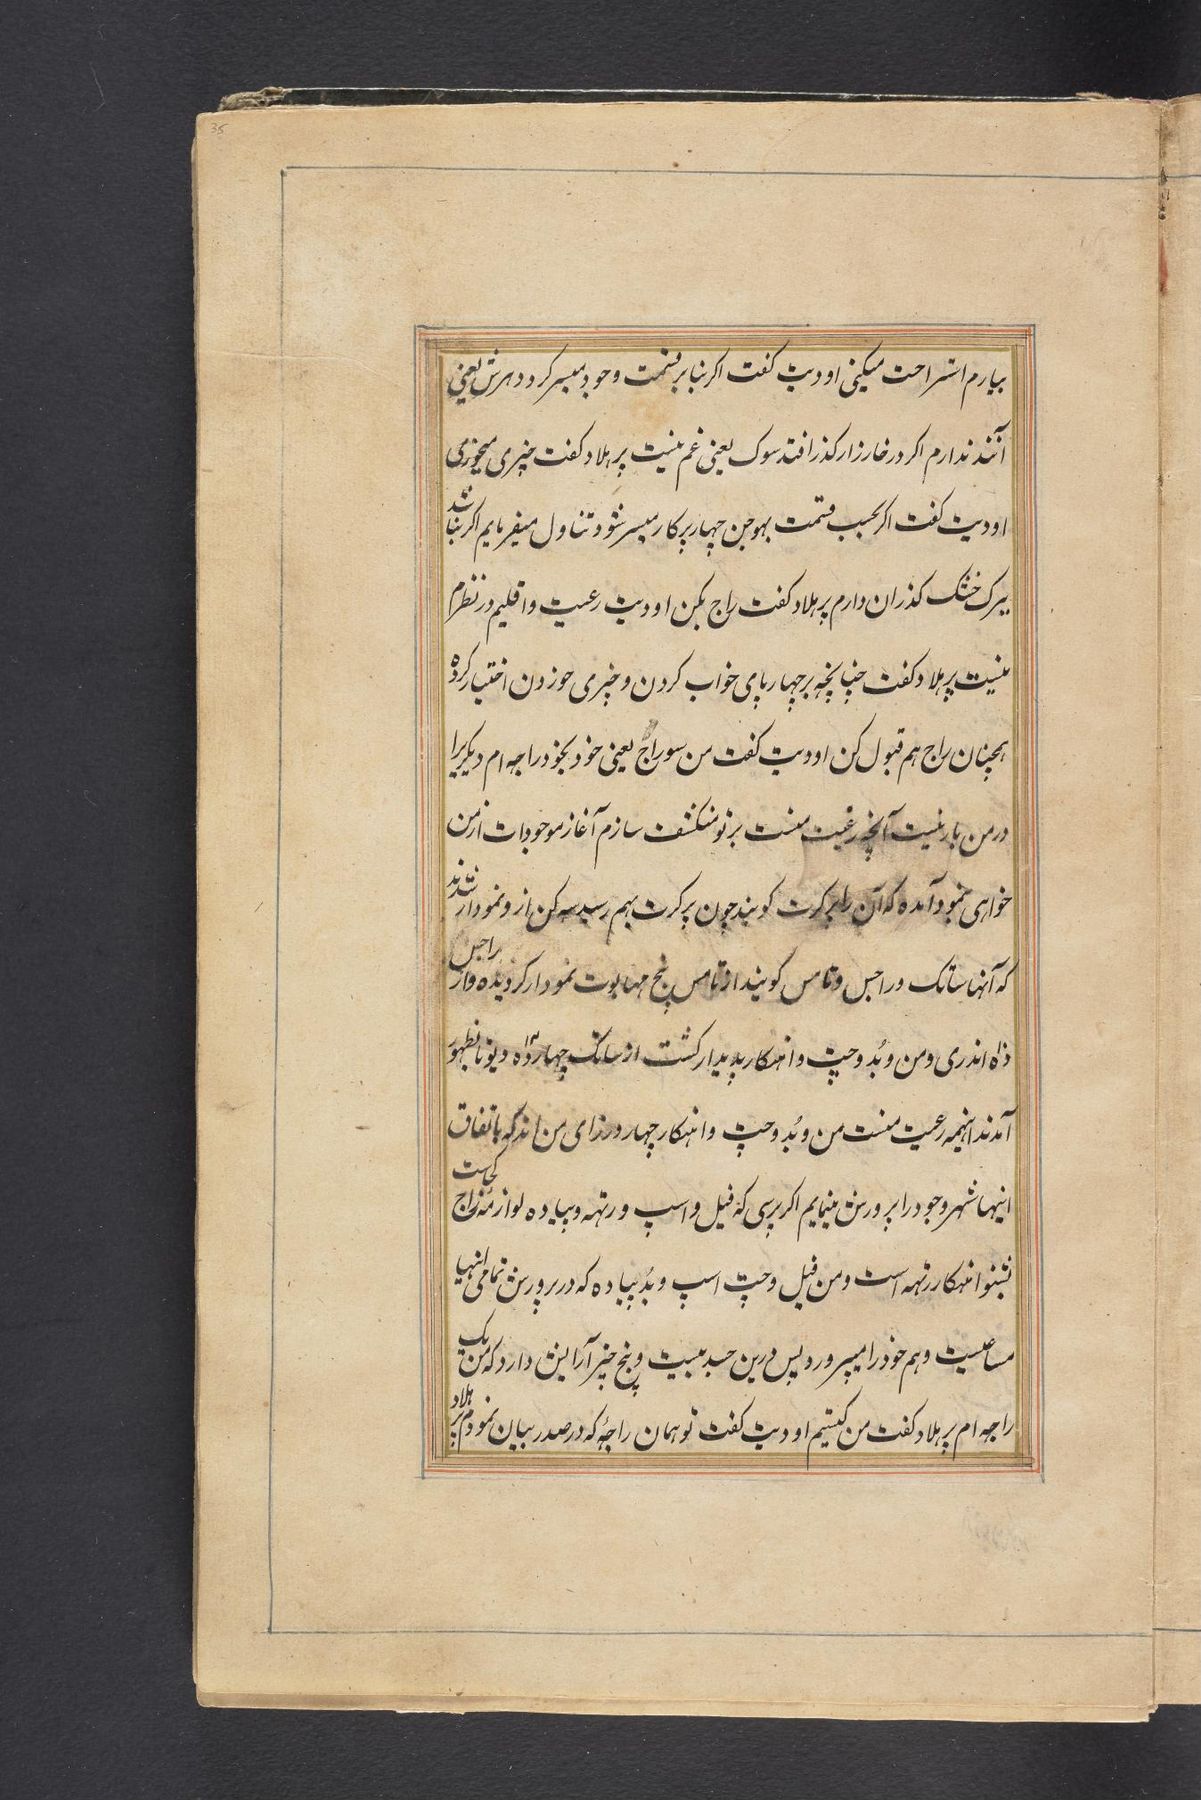 35
بیارم استراحت میکنی اودیت کفت اکر بنابر قسمت وجود میسر کردد هرش یعنی
آنند ندارم اکر در خارزار کذر افتد سوک یعنی غم نیست پرهلاد کفت چیزی میخوری
اودیت کفت اکر بحسب قسمت بهوجن چهار پرکار میسر شود تناول میفرمایم اکر نباشد
ببرک خشک کذران دارم پرهلاد کفت راج بکن اودیت رعیت و اقلیم در نظرم
نیست پرهلاد کفت چنانچه بر چهارپای خواب کردن و چیزی خوردن اختیار کرده
همچنان راج هم قبول کن اودیت کفت من سوراج یعنی خود بخود راجه ام دیکریرا
در من بار نیست آنچه رعیت منست بر تو منکشف سازم آغاز موجودات از من
خواهی نمود آمده که آن را پرکرت کویند چون پرکرت بهم رسید سه کن ازو نمودار شدند
که آنها ساتک و راجس و تامس کویند از تامس پنج مهابوت نمودار کردیده و از راجس
ده اندری و من و بُد و چت و انهکار پدیدار کشت از ساتک چهارده دیوتا بظهور
آمدند اینهمه رعیت منست من و بُد و چت و انهکار چهار وزرای من اند که باتفاق
اینها شهر وجود را پرورش مینمایم اکر پرسی که فیل و اسپ و رتهه و پیاده لوازمهٔ راج کجاست
بشنو انهکار رتهه است و من فیل و چت اسپ و بُد پیاده که در پرورش تمامی اینها
مساعیست و هم خود را میپرورد پس درین جسد بیست و پنج چیز آرایش دارد که من یک
راجه ام پرهلاد کفت من کیستم اودیت کفت تو همان راجهٔ که در صدر بیان نمودم پرهلاد